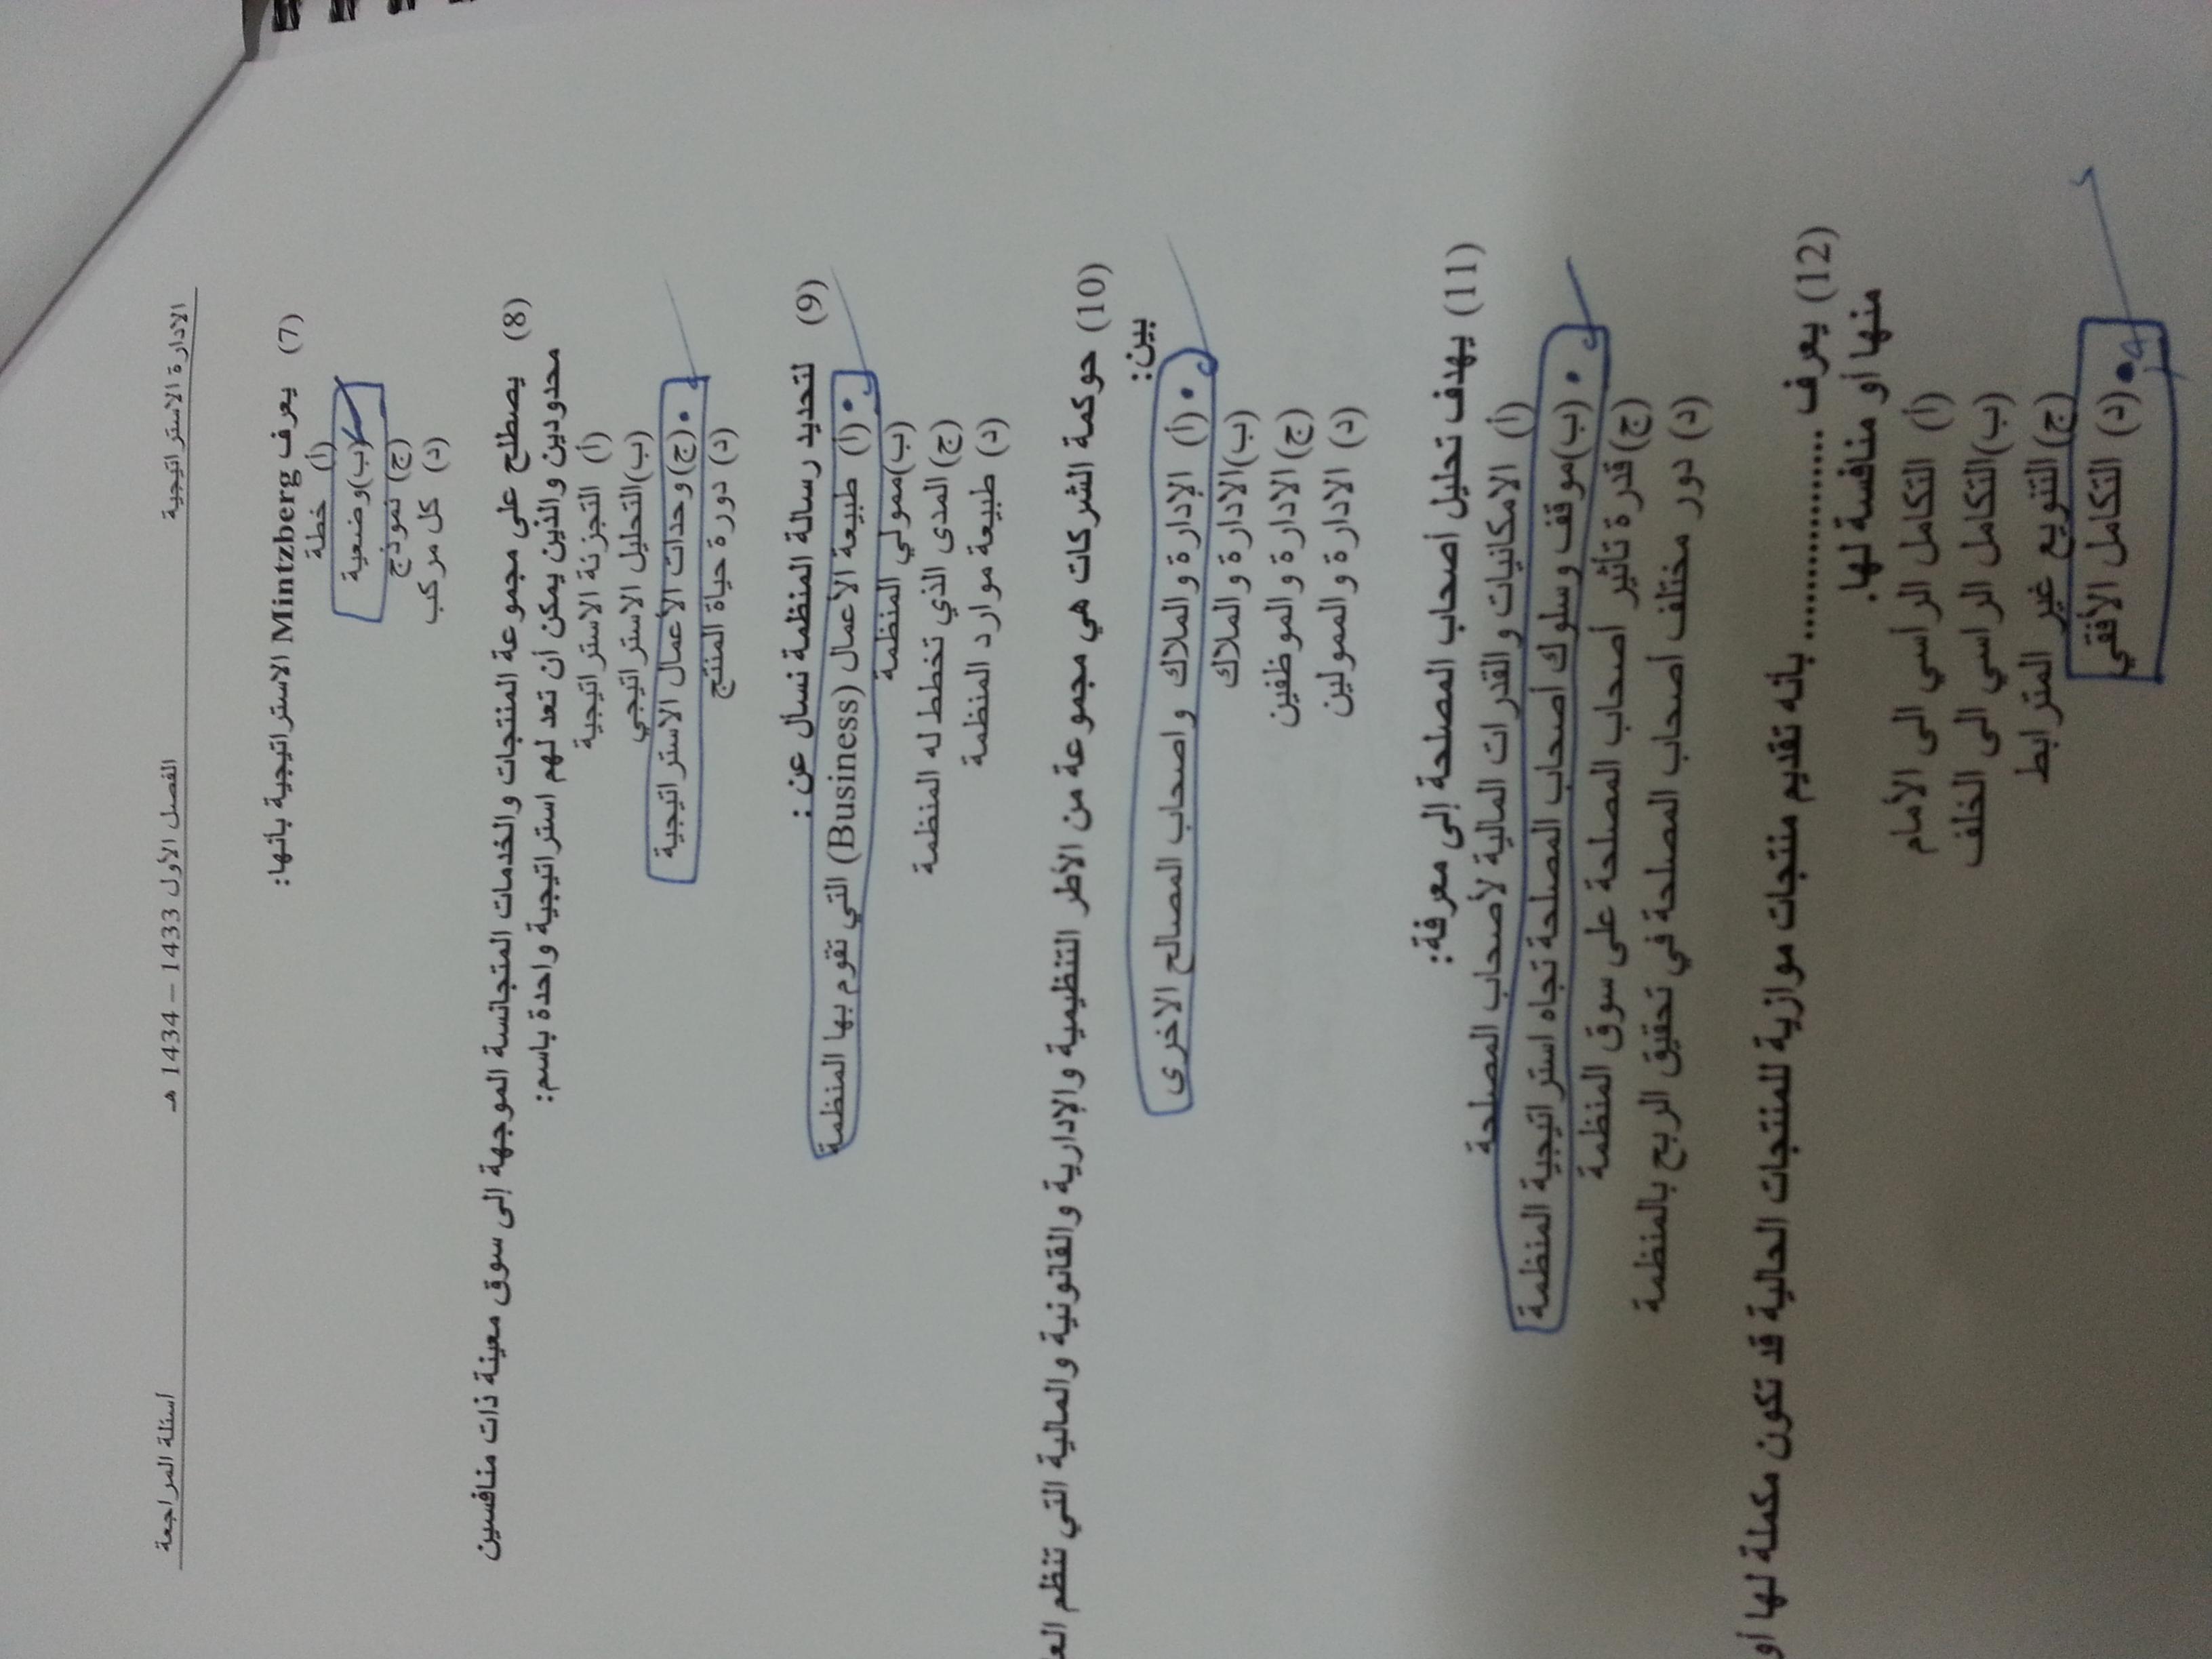 الادارة الاستراتيجية الفصل الأول 1433 – 1434 هـ أسئلة المراجعة
(7) يعرف Mintzberg الاستراتيجية بأنها:
(أ) خطة
(ب)وضعية
(ج) نموذج
(د) كل مركب
(8) يصطلح على مجموعة المنتجات والخدمات المتجانسة الموجهة إلى سوق معينة ذات منافسين
محدودين والذين يمكن أن تعد لهم استراتيجية واحدة باسم:
(أ) التجزئة الاستراتيجية
(ب)التحليل الاستراتيجي
(ج)وحدات الأعمال الاستراتيجية
(د) دورة حياة المنتج
(9) لتحديد رسالة المنظمة نسأل عن :
(أ) طبيعة الأعمال (Business) التي تقوم بها المنظمة
(ب)ممولي المنظمة
(ج)المدى الذي تخطط له المنظمة
(د) طبيعة موارد المنظمة
(10) حوكمة الشركات هي مجموعة من الأطر التنظيمية والإدارية والقانونية والمالية التي تنظم
بين:
(أ) الإدارة والملاك واصحاب المصالح الاخرى
(ب)الادارة والملاك
(ج)الادارة والموظفين
(د) الادارة والممولين
(11) يهدف تحليل أصحاب المصلحة إلى معرفة:
(أ) الامكانيات والقدرات المالية لأصحاب المصلحة
(ب)موقف وسلوك أصحاب المصلحة تجاه استراتيجية المنظمة
(ج)قدرة تأثير أصحاب المصلحة على سوق المنظمة
(د) دور مختلف أصحاب المصلحة في تحقيق الربح بالمنظمة
(12) يعرف ................ بأنه تقديم منتجات موازية للمنتجات الحالية قد تكون مكملة لها أو
منها أو منافسة لها.
(أ) التكامل الرأسي الى الأمام
(ب)التكامل الرأسي الى الخلف
(ج)التنويع غير المترابط
(د) التكامل الأفقي